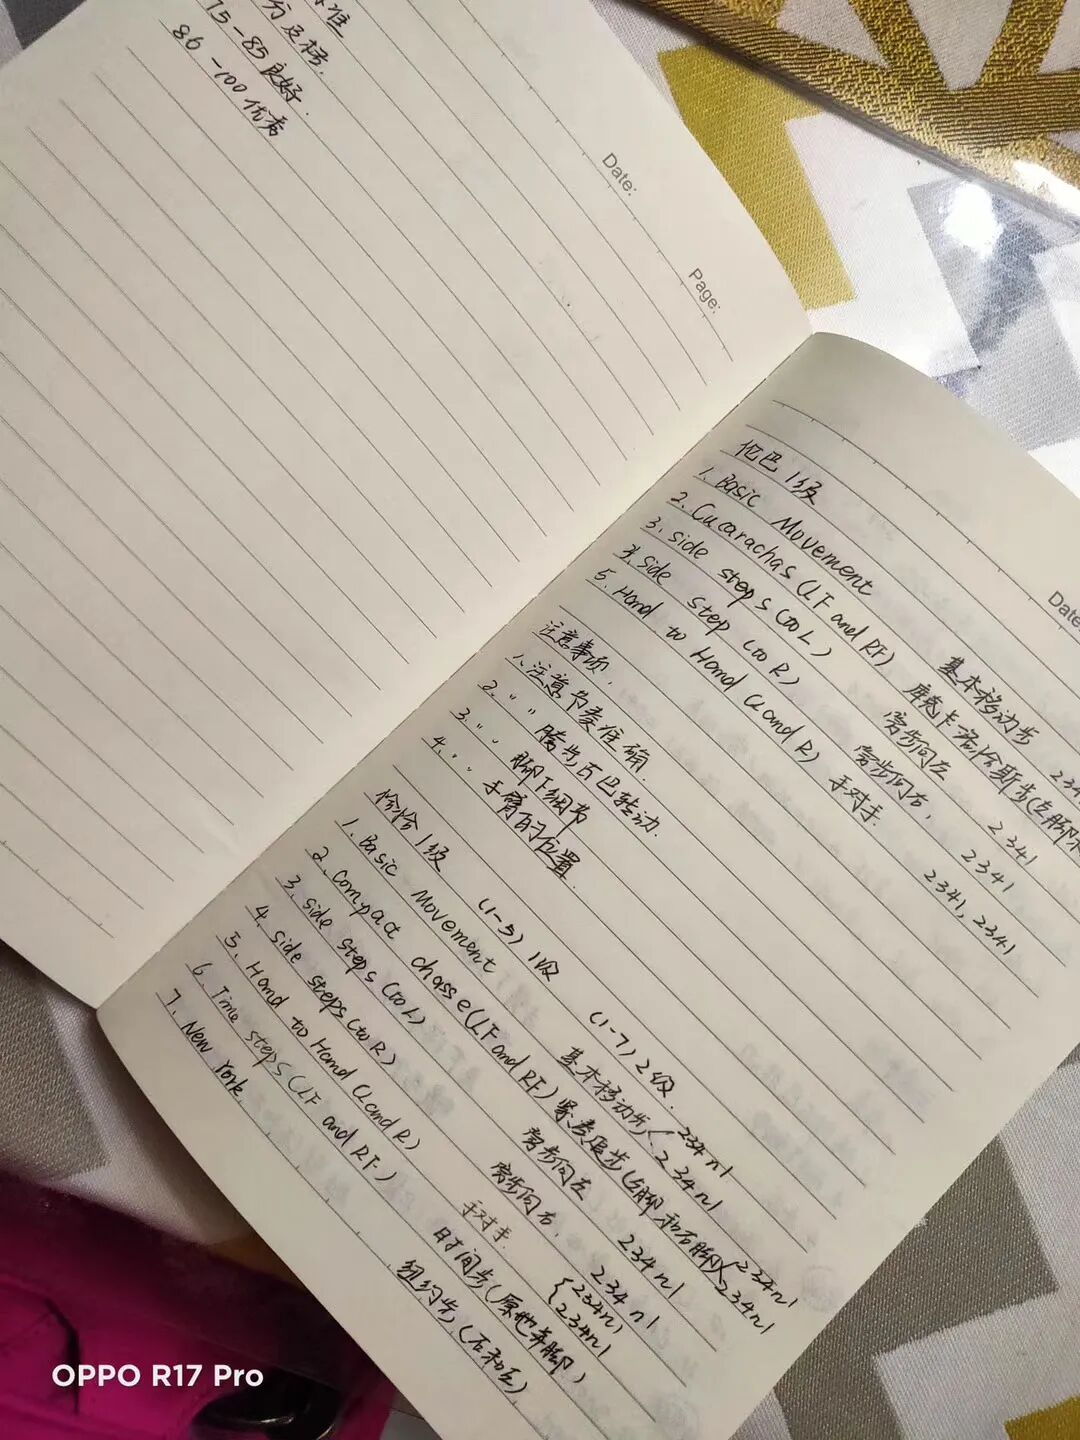 标准
分及格.
75-85良好.
86-100优秀
Date:
Page:
Date:
伦巴1级
1. Basic Movement 基本移动步 234
2. Cucarachas (LF and RF) 库克卡恰斯步(左脚
3. side steps (to L) 旁步向左 2341
4. side step (to R) 旁步向右, 2341
5. Hand to Hand (L and R) 手对手. 2341, 2341
注意事项.
1. 注意节奏准确.
2. 〃 〃 胯步 转动.
3. 〃 〃 脚下细节
4. 〃 〃 手臂的位置.
恰恰1级 (1-5) 1级 (1-7) 2级.
1. Basic Movement 基本移动步 234n1
234n1
2. Compact chasse (LF and RF) 紧凑追步(左脚和右脚) 234n1
234n1
3. side steps (to L) 旁步向左 234n1
4. side steps (to R) 旁步向右. 234n1
5. Hand to Hand (L and R) 手对手. 234n1
234n1
6. Time steps (LF and RF) 时间步(原地并脚)
7. New York 纽约步(右和左)
OPPO R17 Pro